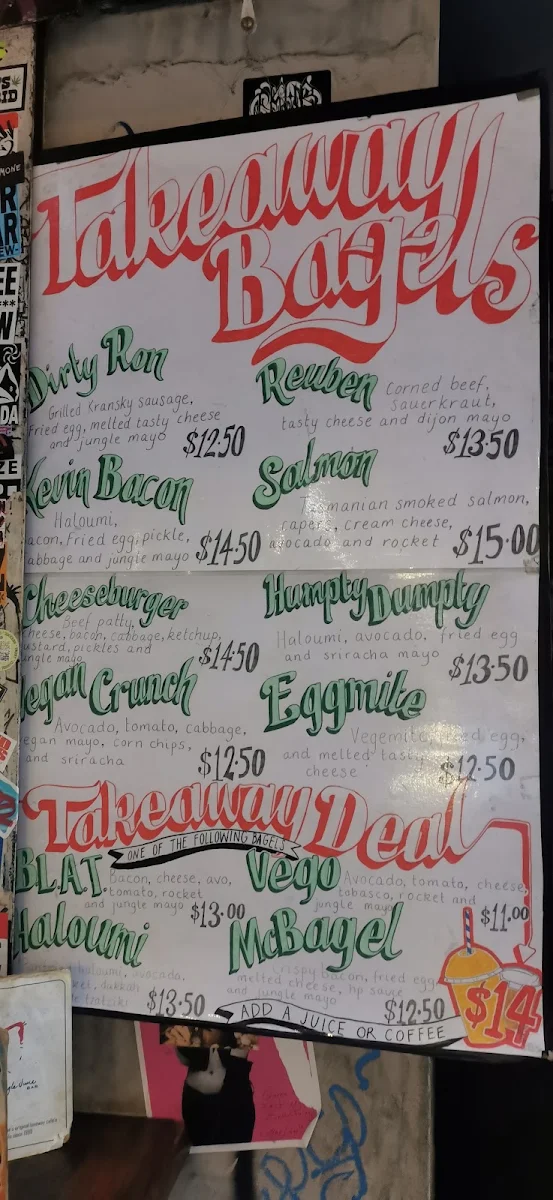 Takeaway
Bagels
Dirty Ron
Grilled Kransky sausage,
Fried egg, melted tasty cheese
and jungle mayo $12.50
Reuben corned beef,
sauerkraut,
tasty cheese and dijon mayo
$13.50
Kevin Bacon
Haloumi,
acon, Fried egg, pickle,
abbage and jungle mayo $14.50
Salmon
Tasmanian smoked salmon,
capers, cream cheese,
avocado and rocket $15.00
Cheeseburger
Beef patty,
cheese, bacon, cabbage, ketchup,
ustard, pickles and
ungle mayo $14.50
Humpty Dumpty
Haloumi, avocado, fried egg
and sriracha mayo
$13.50
egan Crunch
Avocado, tomato, cabbage,
egan mayo, corn chips,
and sriracha $12.50
Eggmite
Vegemite, fried egg,
and melted tasty
cheese $12.50
Takeaway Deal
ONE OF THE FOLLOWING BAGELS
BLAT. Bacon, cheese, avo,
tomato, rocket
and jungle mayo $13.00
Vego Avocado, tomato, cheese,
tobasco, rocket and
jungle mayo $11.00
Haloumi
haloumi, avocado,
dukkah
tzatziki $13.50
McBagel
Crispy bacon, fried egg,
melted cheese, hp sauce
and jungle mayo $12.50
ADD A JUICE OR COFFEE
$14